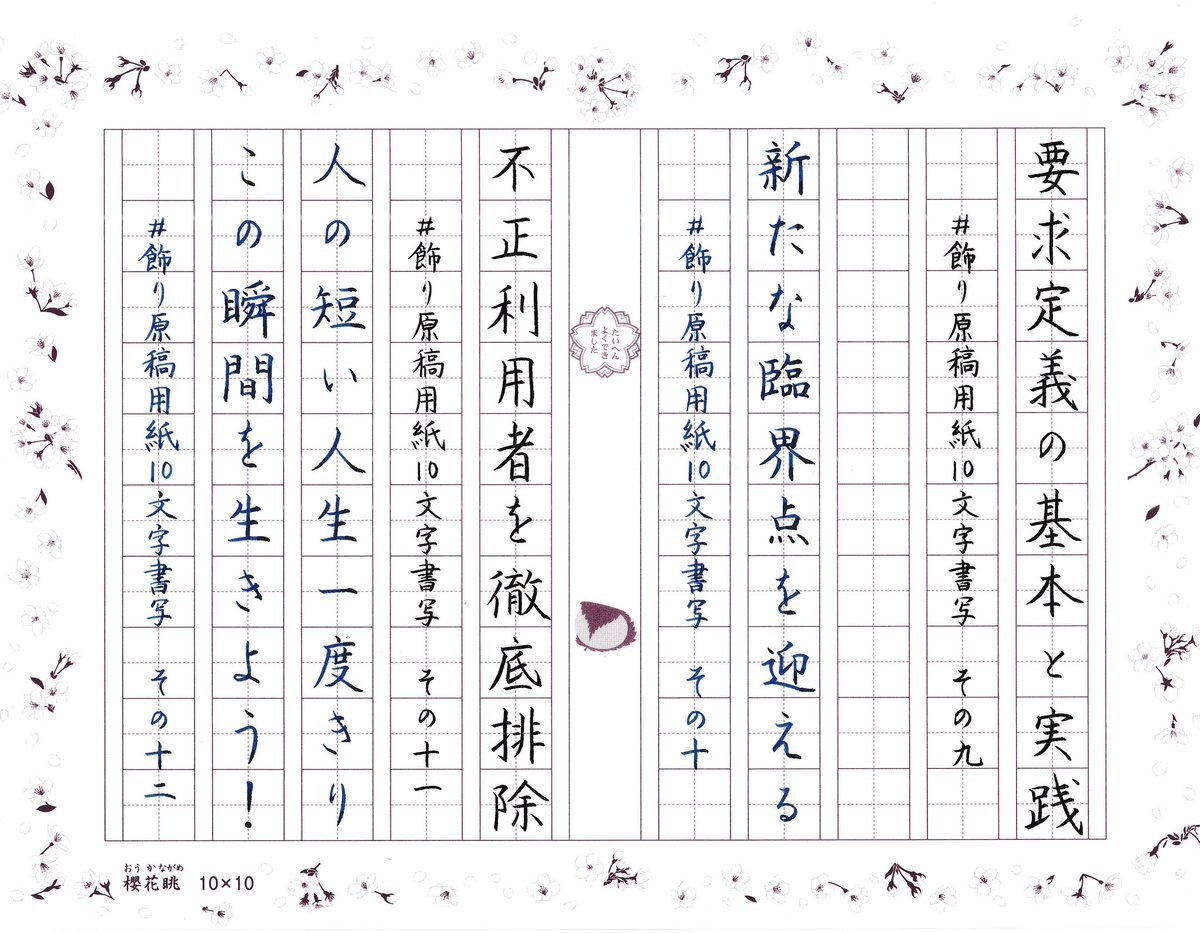 要求定義の基本と実践
#飾り原稿用紙10文字書写 その九
新たな臨界点を迎える
#飾り原稿用紙10文字書写 その十
たいへん
よくでき
ました
不正利用者を徹底排除
#飾り原稿用紙10文字書写 その十一
人の短い人生一度きり
この瞬間を生きよう!
#飾り原稿用紙10文字書写 その十二
おうかながめ
櫻花眺 10×10